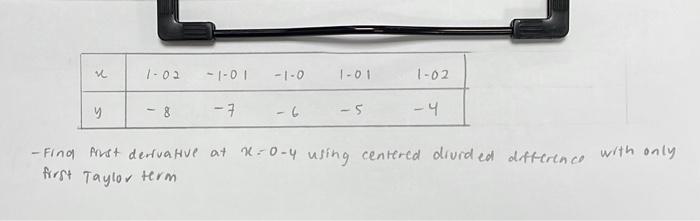 x 1.02 -1.01 -1.0 1.01 1.02
y -8 -7 -6 -5 -4
- Find first derivative at x=0.4 using centered divided difference with only
first Taylor term